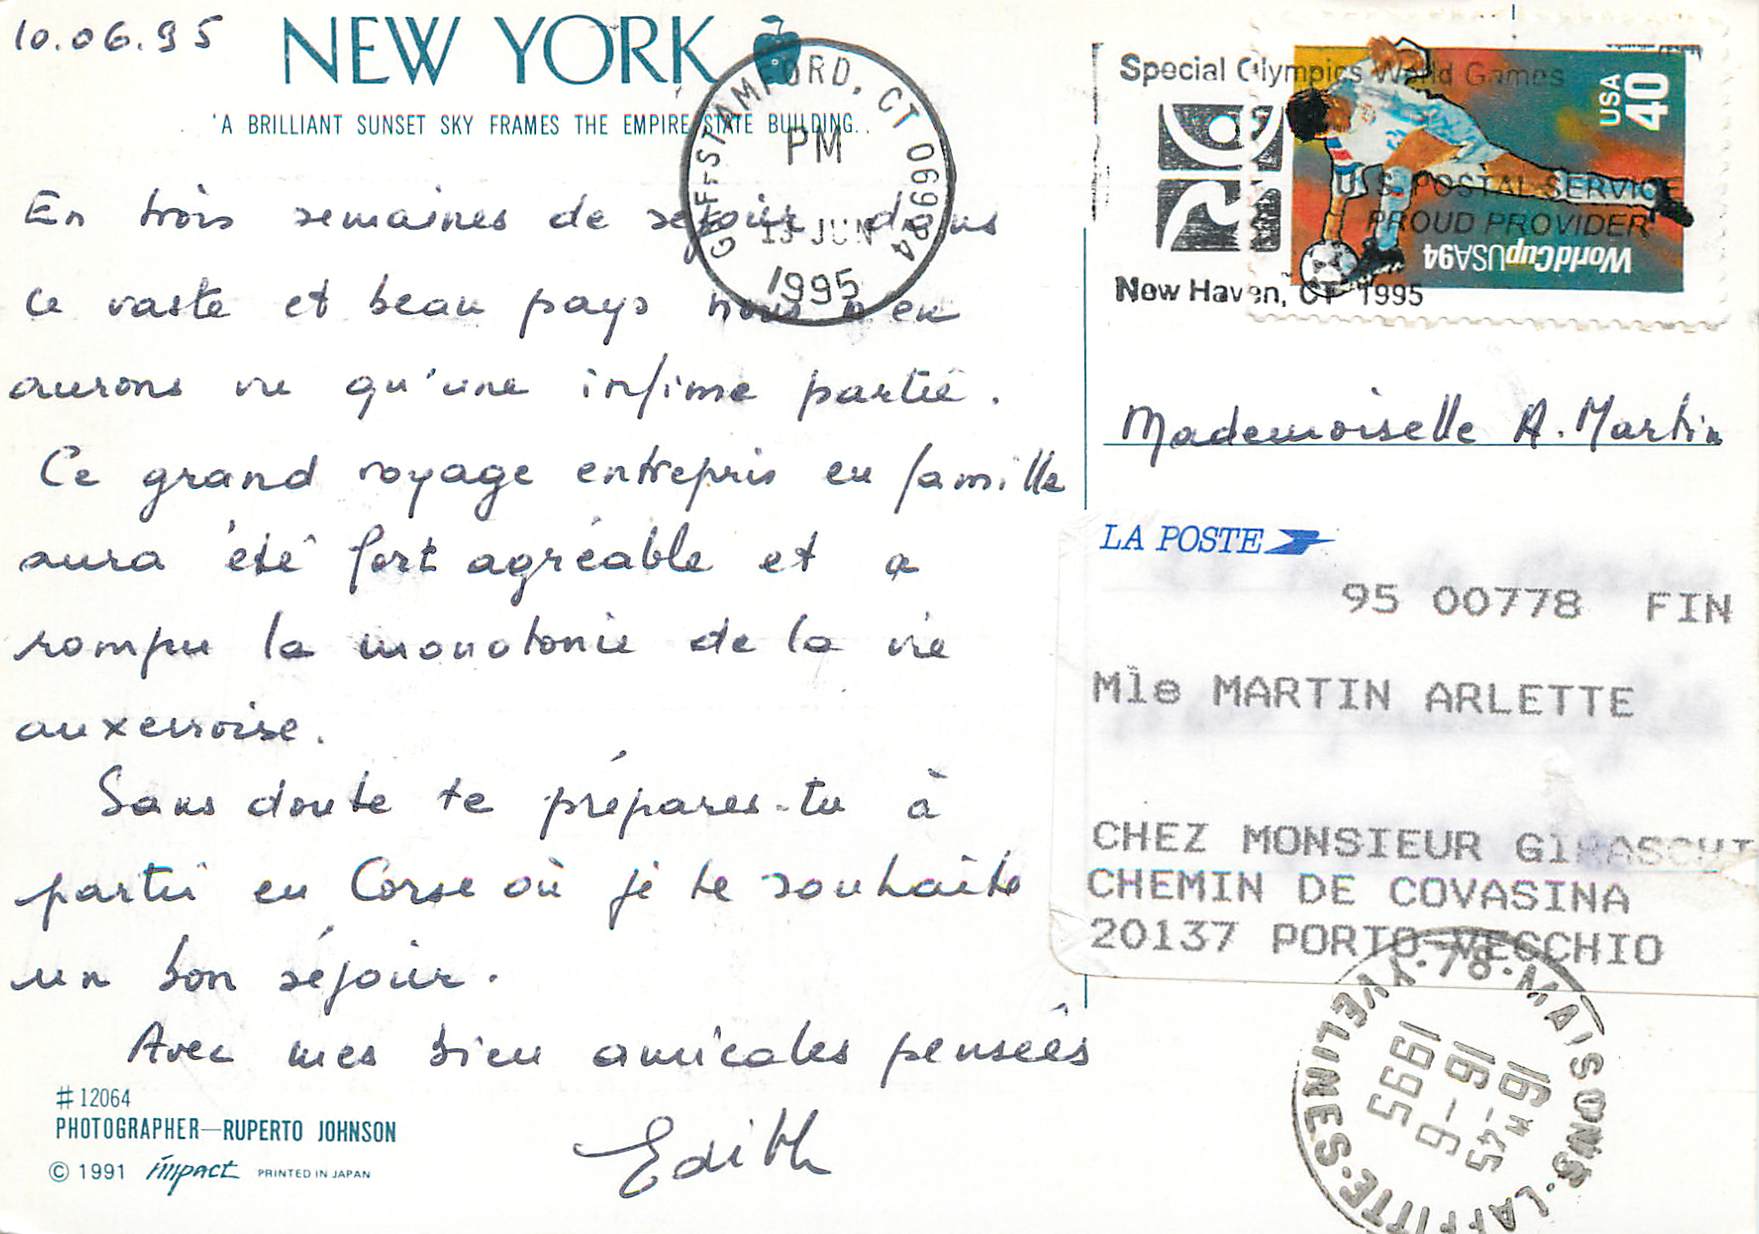 10.06.95
NEW YORK
'A BRILLIANT SUNSET SKY FRAMES THE EMPIRE STATE BUILDING..
GMF-STAMFORD, CT 069
PM
JUN
1995
Special Olympics World Games
U.S. POSTAL SERVICE
PROUD PROVIDER
New Haven, CT 1995
USA
40
WorldCupUSA94
En trois semaines de séjour dans
ce vaste et beau pays nous n'en
aurons vu qu'une infime partie.
Ce grand voyage entrepris en famille
aura été fort agréable et a
rompu la monotonie de la vie
auxerroise.
Sans doute te prépares-tu à
partir en Corse où je te souhaite
un bon séjour.
Avec mes bien amicales pensées
Edith
# 12064
PHOTOGRAPHER—RUPERTO JOHNSON
© 1991 impact PRINTED IN JAPAN
Mademoiselle A. Martin
LA POSTE
95 00778 FIN
Mle MARTIN ARLETTE
CHEZ MONSIEUR
CHEMIN DE COVASINA
20137 PORTO-VECCHIO
78-MAISONS-LAFFITTE-YVELINES
16 H 45
16-6
1995